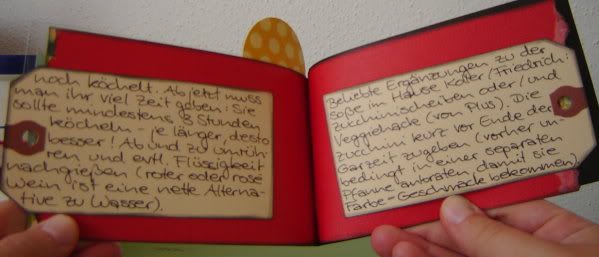 noch köchelt. Ab jetzt muss
man ihr viel Zeit geben: Sie
sollte mindestens 3 Stunden
köcheln - je länger, desto
besser! Ab und zu umrüh-
ren und evtl. Flüssigkeit
nachgießen (roter oder rosé
Wein ist eine nette Alterna-
tive zu Wasser).
Beliebte Ergänzungen zu der
Soße im Hause Koller/Friedrich:
Zucchinischeiben oder/und
Veggiehack (von Plus). Die
Zucchini kurz vor Ende der
Garzeit zugeben (vorher un-
bedingt in einer separaten
Pfanne anbraten, damit sie
Farbe + Geschmack bekommen).